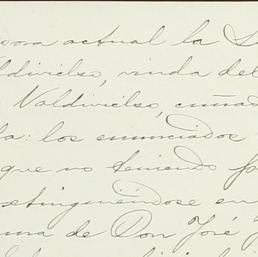 dora actual la S
ldivielso, viuda del
Valdivielso, cuñad
la: los enunciados
que no teniendo
extinguiéndose en
una de Don José